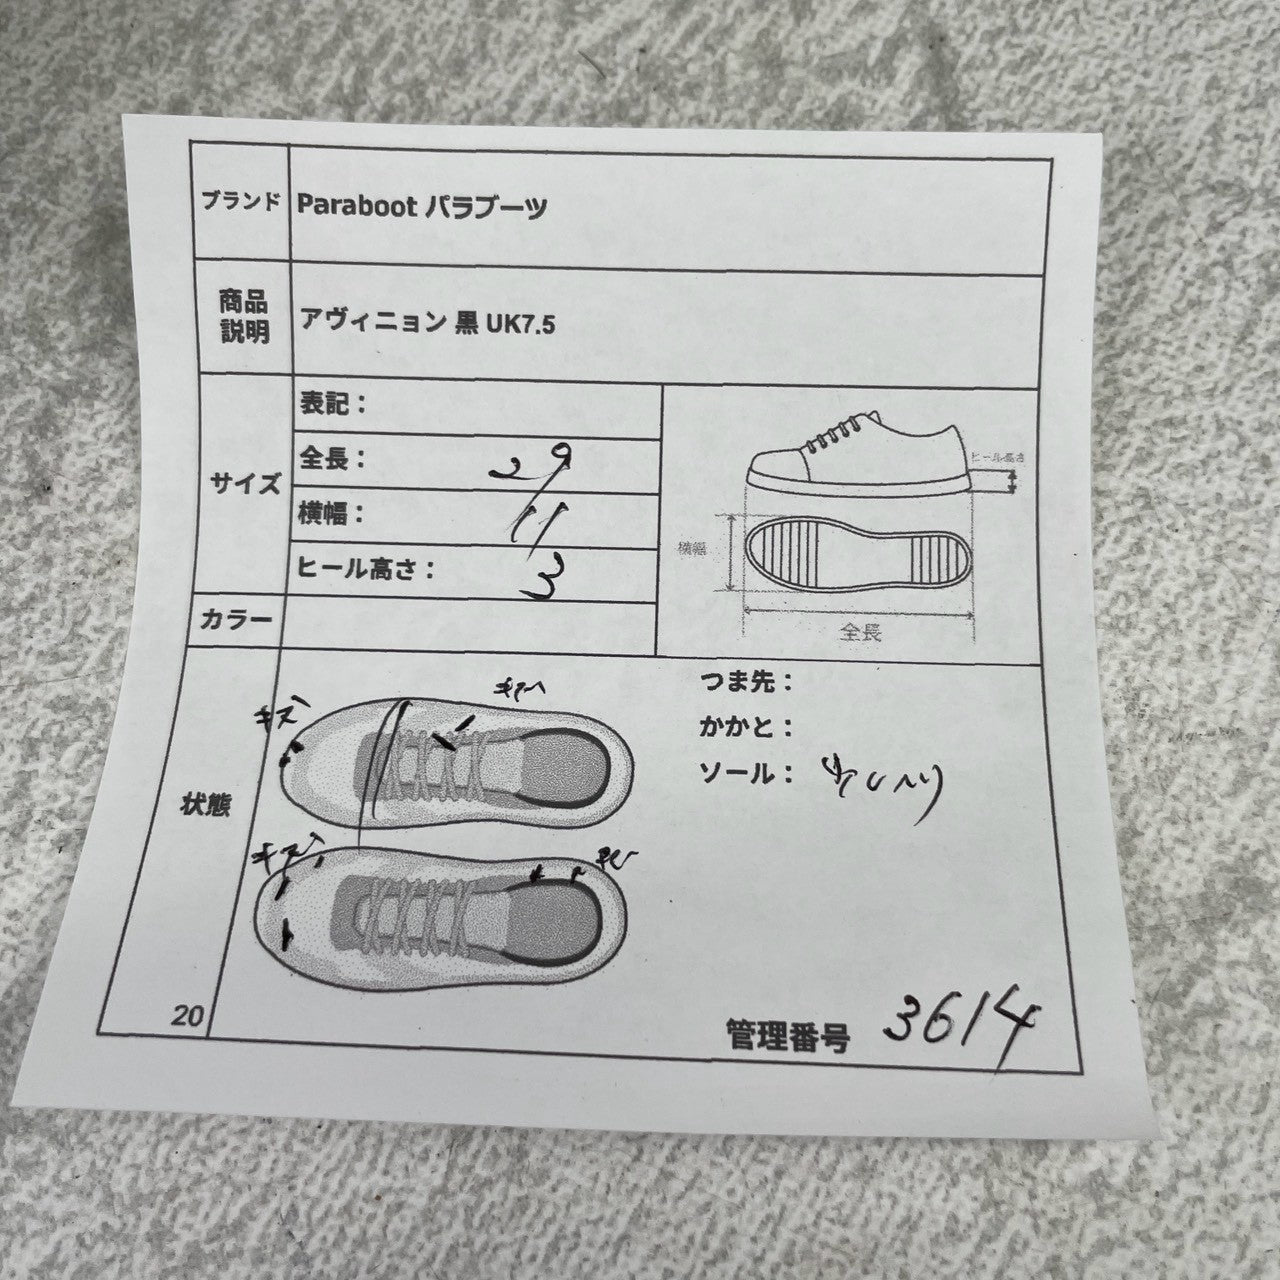 ブランド
Paraboot パラブーツ
商品
説明
アヴィニョン 黒 UK7.5
サイズ
表記：
全長： 29
横幅： 11
ヒール高さ： 3
ヒール高さ
横幅
全長
カラー
状態
キズ
キズ
つま先：
かかと：
ソール：
20
管理番号 3614